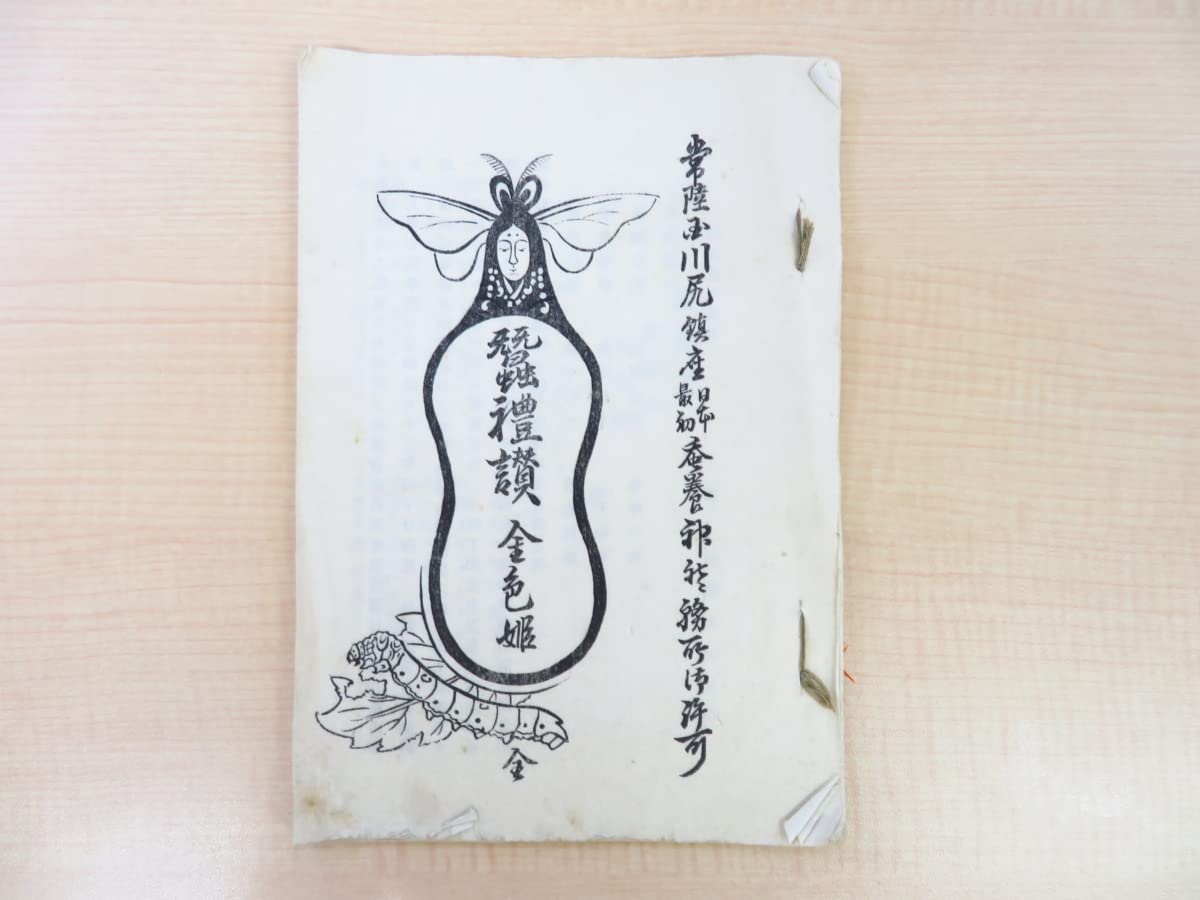 常陸国川尻鎮座日本最初蚕養神社務所御許可
蠶禮讃 金色姫
全